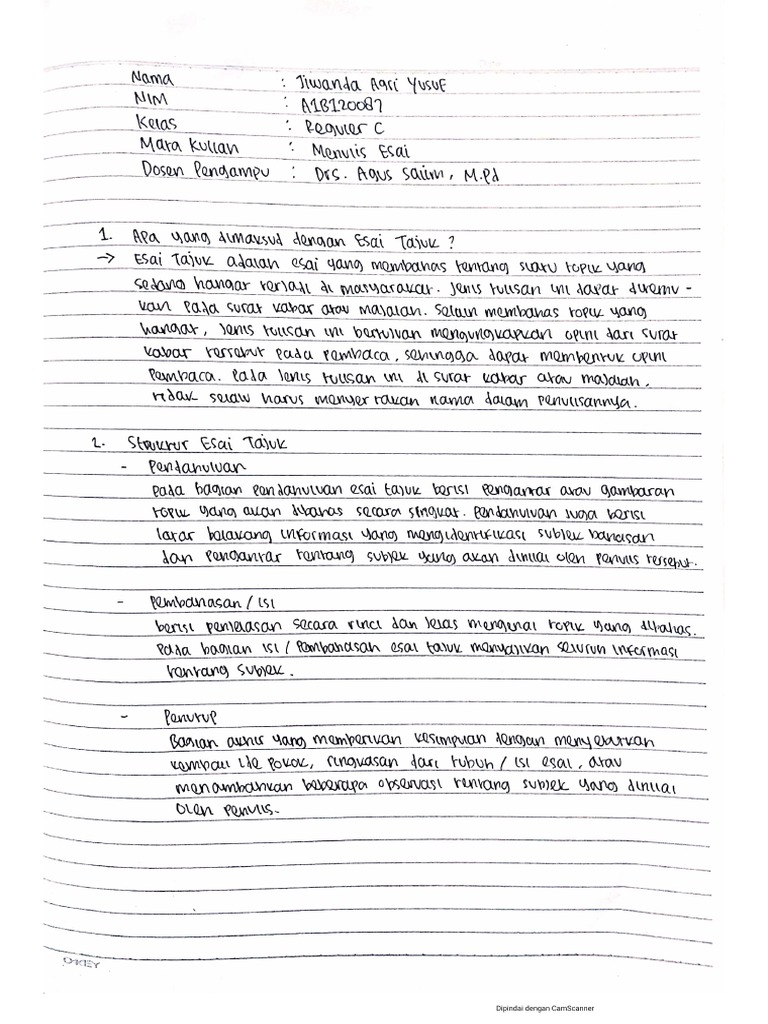 Nama : Jiwanda Agri Yusuf
NIM : A1B120087
Kelas : Reguler C
Mata Kuliah : Menulis Esai
Dosen Pengampu : Drs. Agus Salim, M.Pd
1. Apa yang dimaksud dengan Esai Tajuk ?
→ Esai Tajuk adalah esai yang membahas tentang suatu topik yang
sedang hangat terjadi di masyarakat. Jenis tulisan ini dapat ditemu -
kan pada surat kabar atau majalah. Selain membahas topik yang
hangat, jenis tulisan ini bertujuan mengungkapkan opini dari surat
kabar tersebut pada pembaca, sehingga dapat membentuk opini
pembaca. Pada jenis tulisan ini di surat kabar atau majalah,
tidak selalu harus menyertakan nama dalam penulisannya.
2. Struktur Esai Tajuk
- Pendahuluan
Pada bagian pendahuluan esai tajuk berisi pengantar atau gambaran
topik yang akan dibahas secara singkat. Pendahuluan juga berisi
latar belakang informasi yang mengidentifikasi subjek bahasan
dan pengantar tentang subjek yang akan dinilai oleh penulis tersebut.
- Pembahasan / isi
berisi penjelasan secara rinci dan jelas mengenai topik yang dibahas.
Pada bagian isi / pembahasan esai tajuk menyajikan seluruh informasi
tentang subjek.
- Penutup
Bagian akhir yang memberikan kesimpulan dengan menyebutkan
kembali ide pokok, ringkasan dari tubuh / isi esai, atau
menambahkan beberapa observasi tentang subjek yang dinilai
oleh penulis.
O-KEY
Dipindai dengan CamScanner